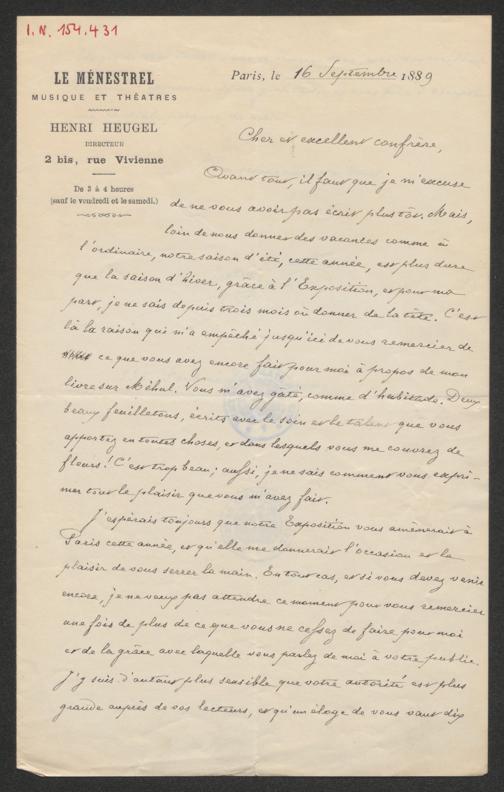 I.N. 154.431
LE MÉNESTREL
MUSIQUE ET THÉATRES
HENRI HEUGEL
DIRECTEUR
2 bis, rue Vivienne
De 3 à 4 heures
(sauf le vendredi et le samedi.)
Paris, le 16 Septembre 1889
Cher et excellent confrère,
Avant tout, il faut que je m'excuse
de ne vous avoir pas écrit plus tôt. Mais,
loin de nous donner des vacances comme à
l'ordinaire, notre saison d'été, cette année, est plus dure
que la saison d'hiver, grâce à l'Exposition, et pour ma
part, je ne sais depuis trois mois où donner de la tête. C'est
là la raison qui m'a empêché jusqu'ici de vous remercier de
ce que vous avez encore fait pour moi à propos de mon
livre sur Méhul. Vous m'avez gâté, comme d'habitude. Deux
beaux feuilletons, écrits avec le soin et le talent que vous
apportez en toutes choses, et dans lesquels vous me couvrez de
fleurs! C'est trop beau; aussi, je ne sais comment vous expri-
mer tout le plaisir que vous m'avez fait.
J'espérais toujours que notre Exposition vous amènerait à
Paris cette année, et qu'elle me donnerait l'occasion et le
plaisir de vous serrer la main. En tout cas, et si vous devez venir
encore, je ne veux pas attendre ce moment pour vous remercier
une fois de plus de ce que vous ne cessez de faire pour moi
et de la grâce avec laquelle vous parlez de moi à votre public.
J'y suis d'autant plus sensible que votre autorité est plus
grande auprès de vos lecteurs, et qu'un éloge de vous vaut dix